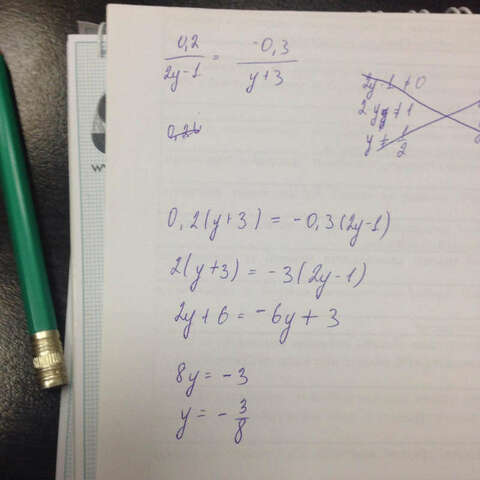 0,2/(2y-1) = -0,3/(y+3)
2y-1≠0
2y≠1
y≠1/2
0,2(y+3) = -0,3(2y-1)
2(y+3) = -3(2y-1)
2y+6 = -6y+3
8y = -3
y = -3/8